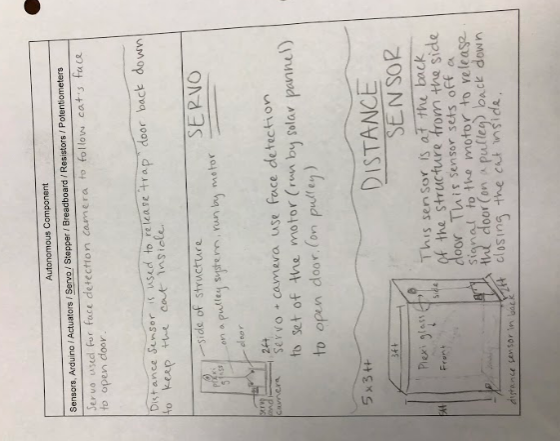 Autonomous Component
Sensors, Arduino / Actuators / Servo / Stepper / Breadboard / Resistors / Potentiometers
Servo used for face detection camera to follow cat's face
to open door.
Distance Sensor is used to release "trap" door back down
to keep the cat inside.
SERVO
side of structure
on a pulley system, run by motor
door
plexi
glass
2ft
servo
and
camera
servo + camera use face detection
to set of the motor (run by solar pannel)
to open door. (on pulley)
5 x 3 ft
DISTANCE
SENSOR
This sensor is at the back
of the structure from the side
door. This sensor sets off a
signal to the motor to release
the door (on a pulley) back down
closing the cat inside.
3ft
Plexi glass
side
Front
5ft
2ft
distance sensor in back